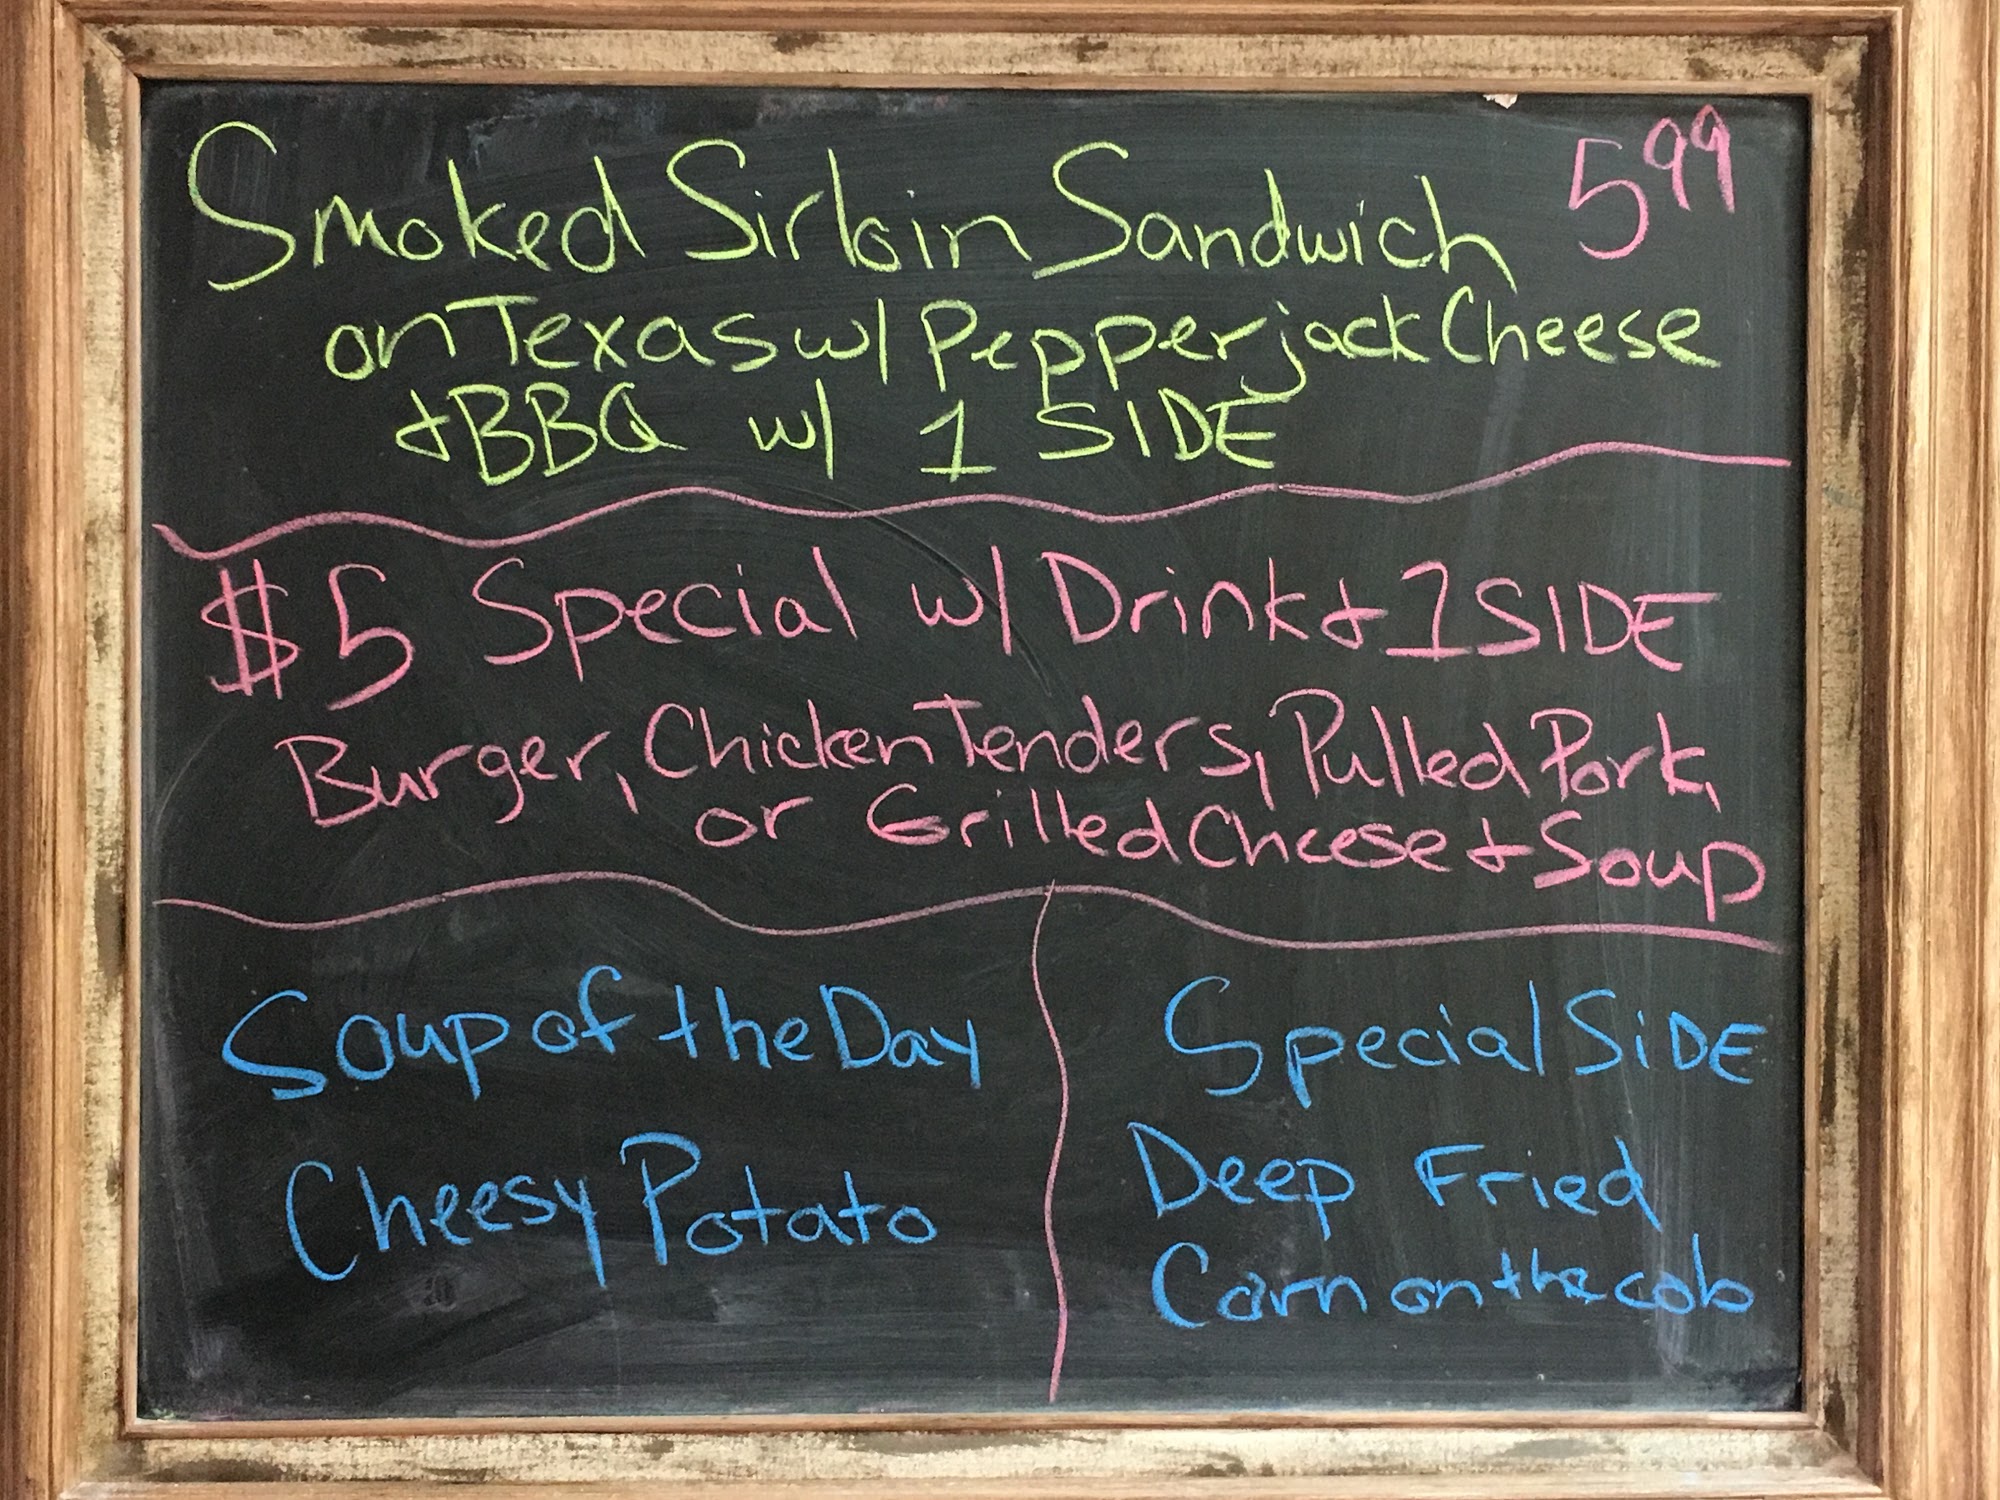 Smoked Sirloin Sandwich 5⁹⁹
on Texas w/ Pepperjack Cheese
& BBQ w/ 1 SIDE
$5 Special w/ Drink & 1 SIDE
Burger, Chicken Tenders, Pulled Pork,
or Grilled Cheese & Soup
Soup of the Day
Cheesy Potato
Special SiDE
Deep Fried
Corn on the cob